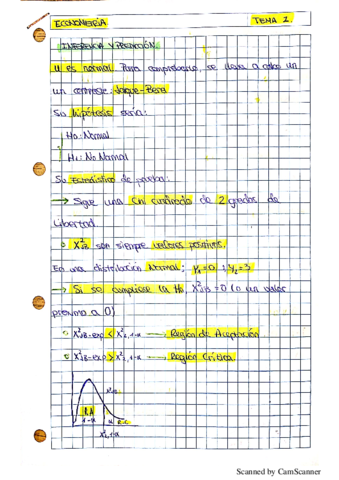 ECONOMETRÍA TEMA 2.
INFERENCIA Y PREDICCIÓN.
U es normal. Para comprobarlo, se lleva a cabo un
un contraste: Jarque-Bera
Su hipótesis sería:
H₀: Normal
H₁: No Normal
Su estadístico de prueba:
→ Sigue una Chi cuadrado de 2 grados de
Libertad
X²JB son siempre valores positivos.
En una distribución Normal: γ₁=0 ; γ₂=3
→ Si se cumpliese la H₀, X²JB = 0 (o un valor
próximo a 0)
X²JB-exp < X²2,1-α → Región de Aceptación
X²JB-exp > X²2,1-α → Región Crítica
RA
1-α
α R.C.
X²2,1-α
Scanned by CamScanner